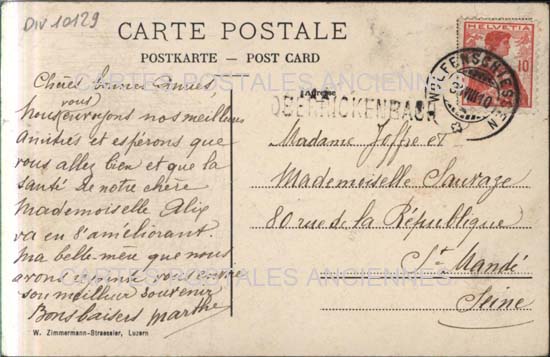 Div 10129
CARTE POSTALE
POSTKARTE – POST CARD
HELVETIA
10
WOLFENSCHIESSEN
3.VIII.10
CARTES POSTALES ANCIENNES
Adresse
OBERRICKENBACH
Chères bonnes amies
Nous vous envoyons nos meilleures
Amitiés et espérons que
vous allez bien et que la
santé de notre chère
Mademoiselle Alix
va en s'améliorant.
Ma belle-mère que nous
avons vous envoie
son meilleur souvenir
Bons baisers Marthe
Madame Joffre et
Mademoiselle Sauvaze
80 rue de la République
St Mandé
Seine
CARTES POSTALES ANCIENNES
W. Zimmermann-Strassler, Luzern